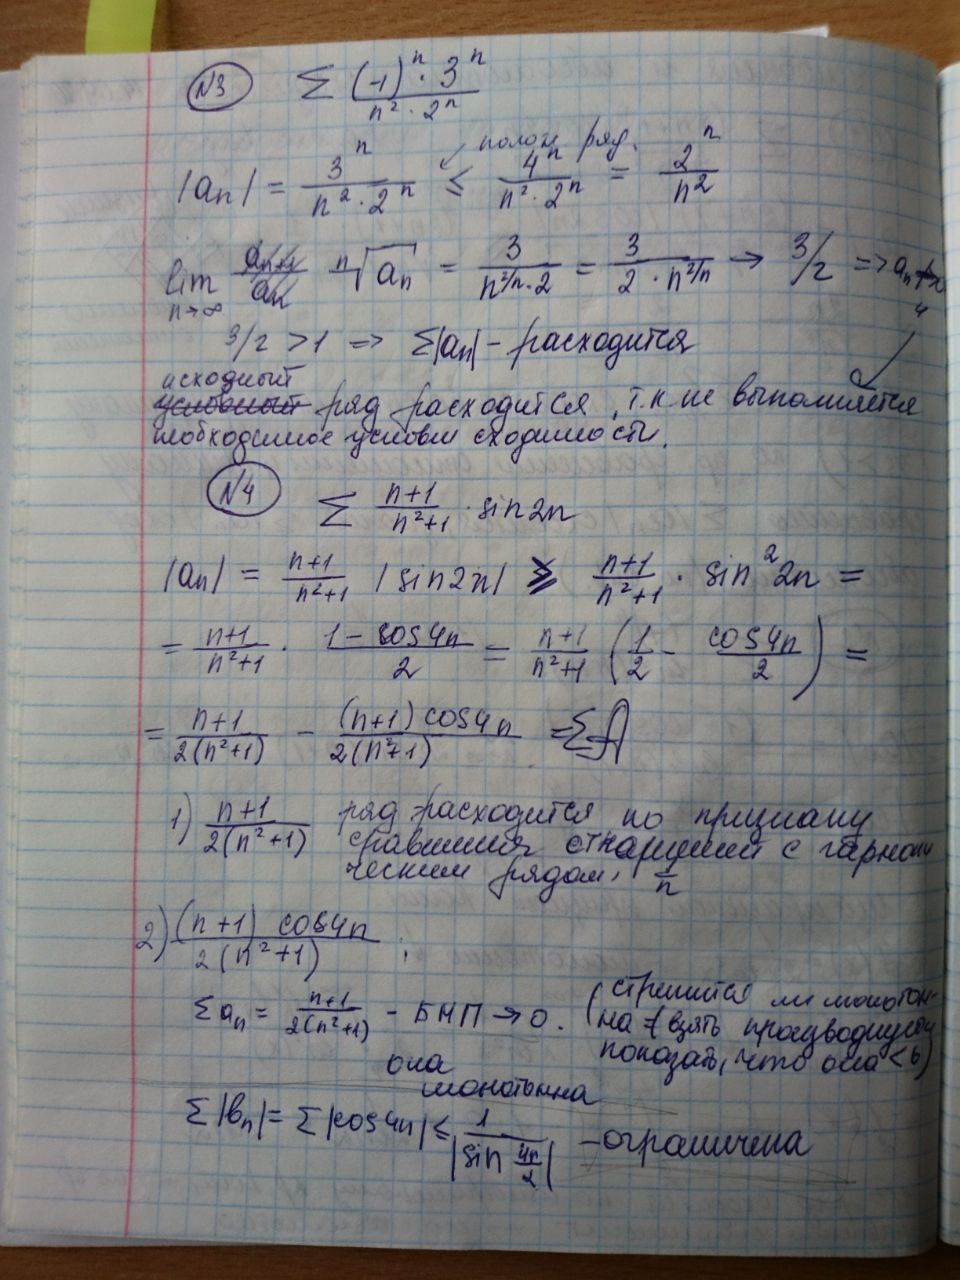 №3 Σ (-1)^n · 3^n / n² · 2^n
полож ряд.
|an| = 3^n / n² · 2^n ≤ 4^n / n² · 2^n = 2^n / n²
lim n→∞ ⁿ√an = 3 / n^(2/n) · 2 = 3 / 2 · n^(2/n) → 3/2 => an
3/2 > 1 => Σ|an| - расходится
исходный
условный ряд расходится, т.к не выполняется
необходимое условие сходимости.
№4 Σ n+1 / n²+1 · sin2n
|an| = n+1 / n²+1 |sin2n| ≥ n+1 / n²+1 · sin²2n =
= n+1 / n²+1 · 1 - cos4n / 2 = n+1 / n²+1 (1/2 - cos4n / 2) =
= n+1 / 2(n²+1) - (n+1) cos4n / 2(n²+1) =
1) n+1 / 2(n²+1) ряд расходится по признаку
сравнения с гармони
ческим рядом, 1/n
2) (n+1) cos4n / 2(n²+1) ;
Σ an = n+1 / 2(n²+1) - БМП → 0. (стремится ли монотон-
но (взять производную
показать, что она < 0)
она
монотонна
Σ|bn| = Σ|cos4n| ≤ 1 / |sin 4n/2| - ограничена